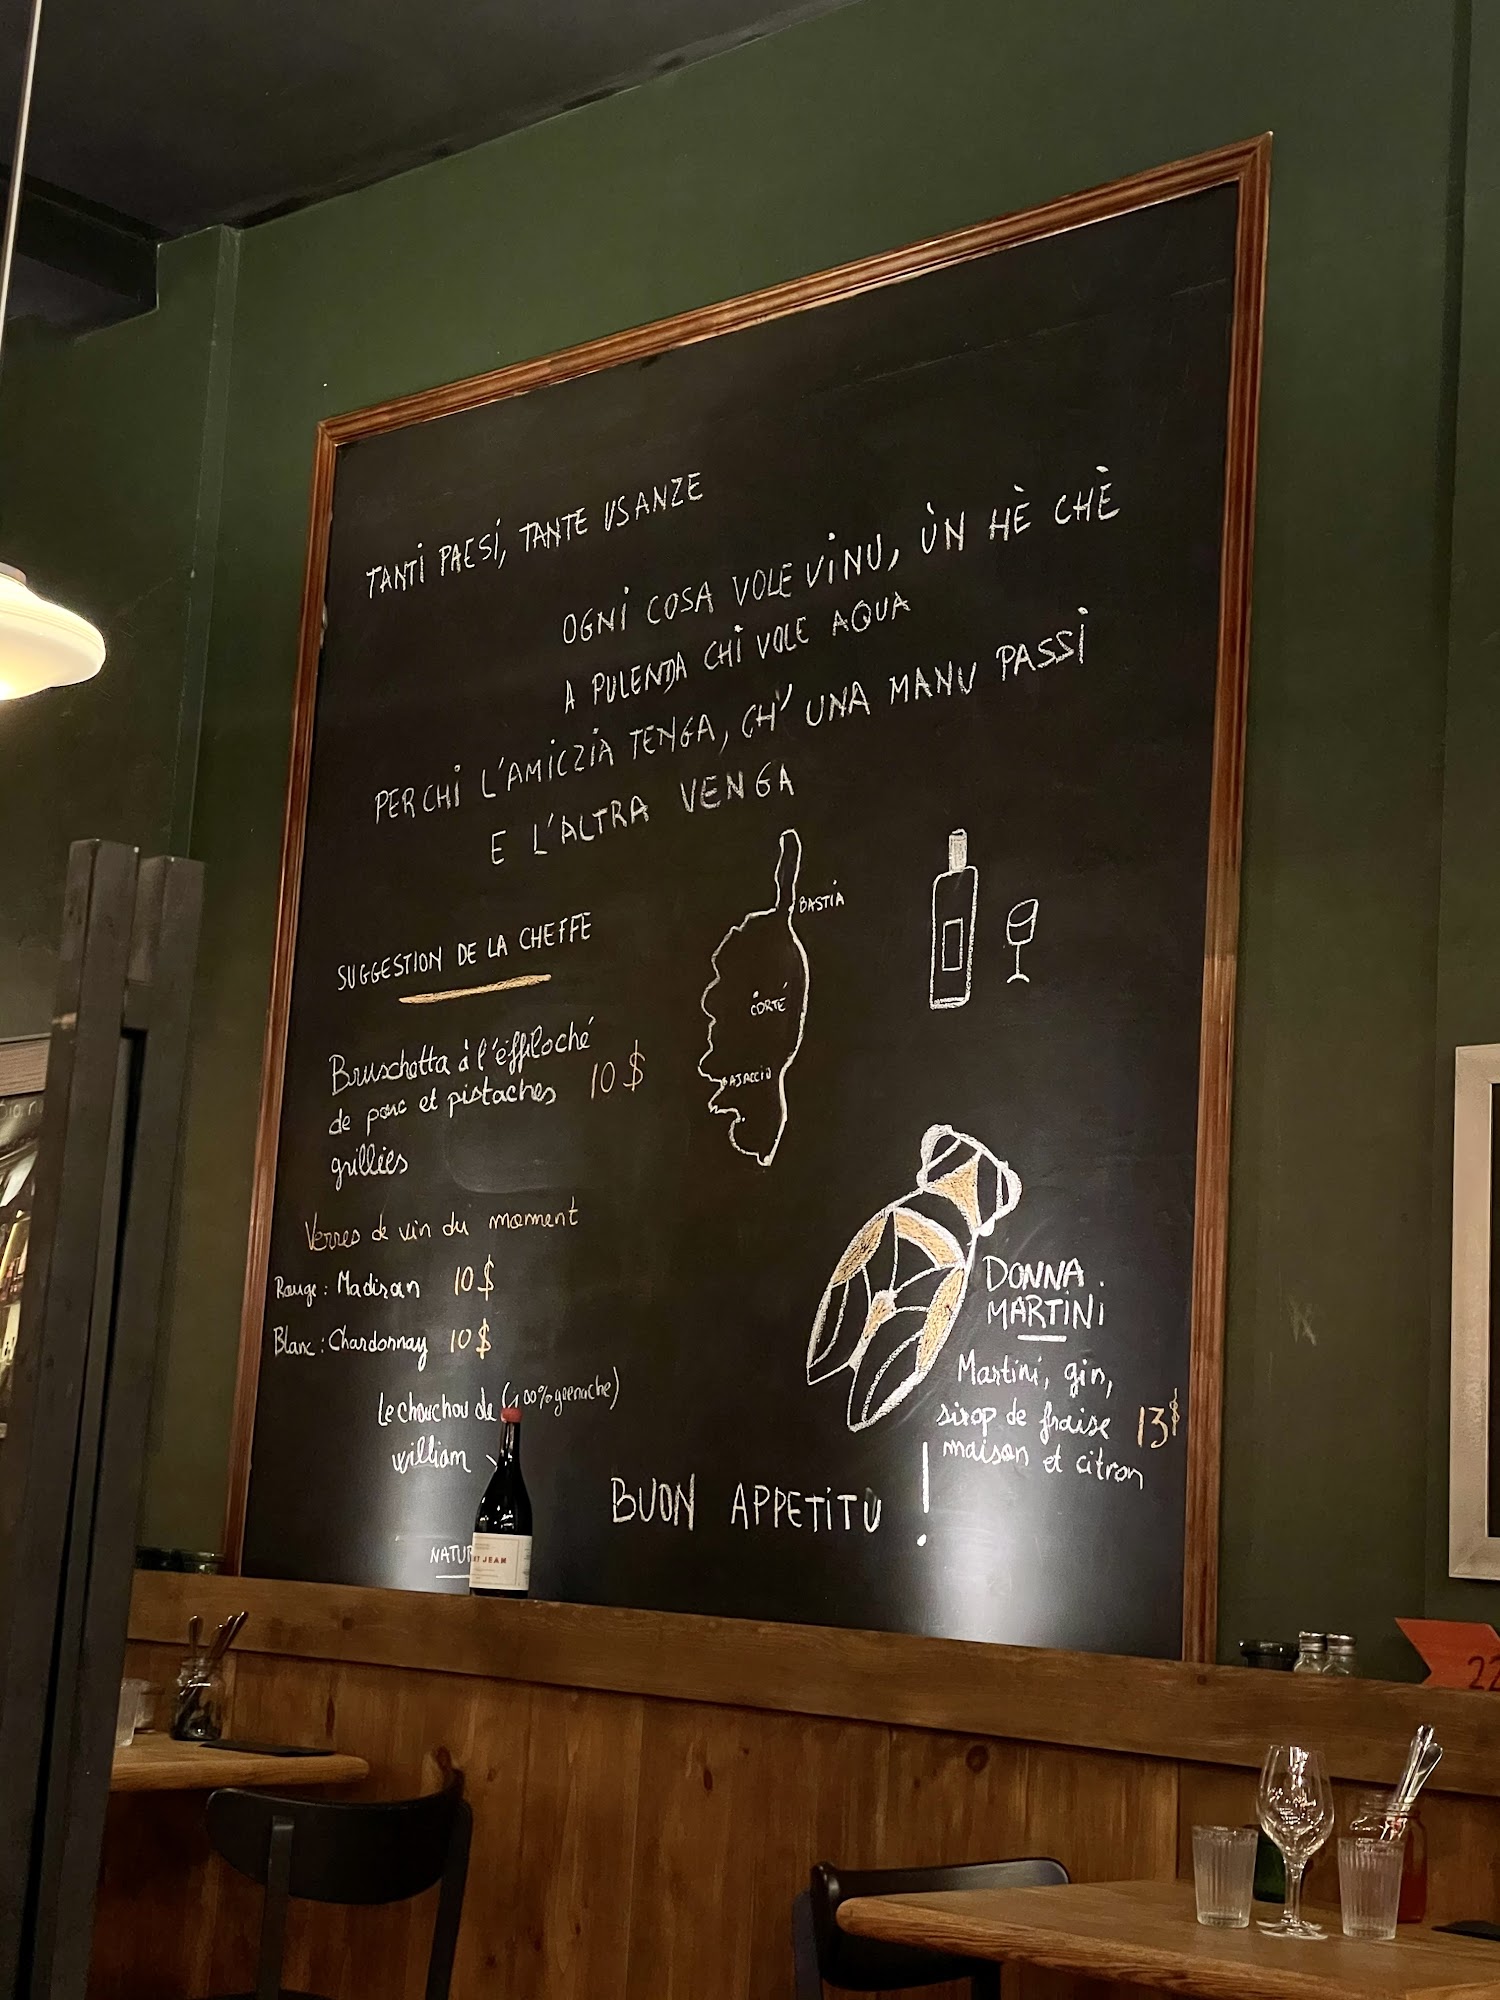 TANTI PAESI, TANTE USANZE
OGNI COSA VOLE VINU, ÙN HÈ CHÈ
A PULENDA CHI VOLE AQUA
PERCHI L'AMICZIA TENGA, CH' UNA MANU PASSI
E L'ALTRA VENGA
BASTIA
CORTÉ
AJACCIO
SUGGESTION DE LA CHEFFE
Bruschetta à l'éffiloché
de porc et pistaches 10$
grillées
Verres de vin du moment
Rouge : Madiran 10$
Blanc : Chardonnay 10$
Le chouchou de (100% grenache)
william
NATUR
JEAN
DONNA
MARTINI
Martini, gin,
sirop de fraise 13$
maison et citron
BUON APPETITU !
22